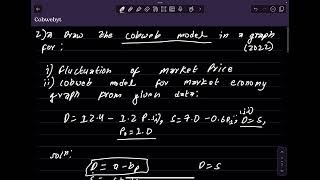 Cobwebys
2)a Draw the cobweb model in a graph
for: (2022)
i) Fluctuation of market Price
ii) cobweb model for market economy
graph from given data:
D = 12.4 - 1.2 P
D = S,
P₀ = 1.0
soln:
D = a - bp D = S